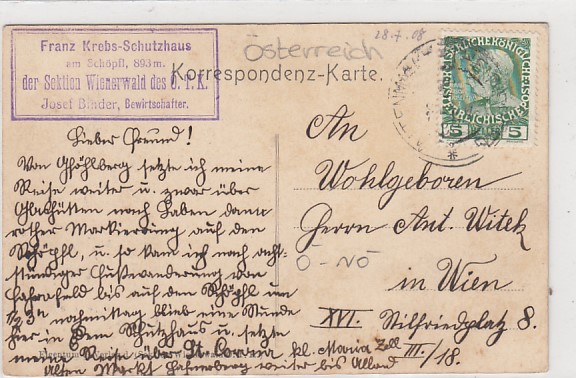 28.-7. 08
Österreich
Franz Krebs-Schutzhaus
am Schöpfl, 893 m.
der Sektion Wienerwald des Ö. T. K.
Josef Binder, Bewirtschafter.
Korrespondenz-Karte.
5 5
Lieber Freund!
Von setzte ich meine
Reise weiter u. zwar über
nach Laben dann
rother Markierung auf den
Schöpfl, u. so kam ich nach acht-
stündiger Fußwanderung von
Fahrafeld bis auf den Schöpfl um
1/2 3h nachmittag blieb eine Stunde
hier in dem Schutzhaus u. setzte
meine Reise über St. Corona kl. Maria Zell
Alten Markt weiter bis
An
Wohlgeboren
Herrn Ant. Witek
Ö - NÖ
in Wien
XVI. Stilfriedplatz 8.
III./18.